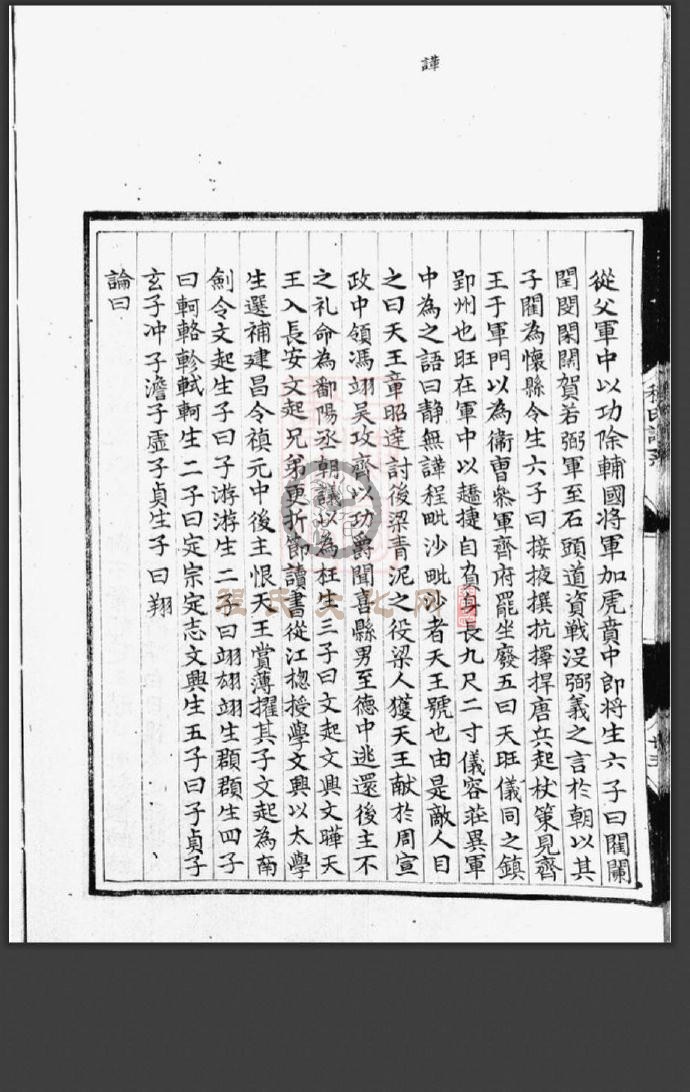 譁
從父軍中以功除輔國將軍加虎賁中郎將生六子曰閣闌
閏閔閑闊賀若弼軍至石頭道資戰沒弼義之言於朝以其
子閣為懷縣令生六子曰接掖撰抗擇捍唐兵起杖策見齊
王于軍門以為衛曹叅軍齊府罷坐廢五曰天旺儀同之鎮
郢州也旺在軍中以趫捷自負身長九尺二寸儀容莊異軍
中為之語曰静無譁程毗沙毗沙者天王號也由是敵人目
之曰天王童昭達討後梁青泥之役梁人獲天王献於周宣
政中領馮翊吴攻齊以功爵聞喜縣男至德中逃還後主不
之礼命為鄱陽丞朝議以為枉生三子曰文起文興文曄天
王入長安文起兄弟更折節讀書從江揔授學文興以太學
生選補建昌令禎元中後主恨天王賞薄擢其子文起為南
劍令文起生子曰子游游生二子曰翊翃翊生郡郡生四子
曰軻輅軫軾軻生二子曰定宗定志文興生五子曰子貞子
玄子冲子澹子虛子貞生子曰翔
論曰
程氏文化网